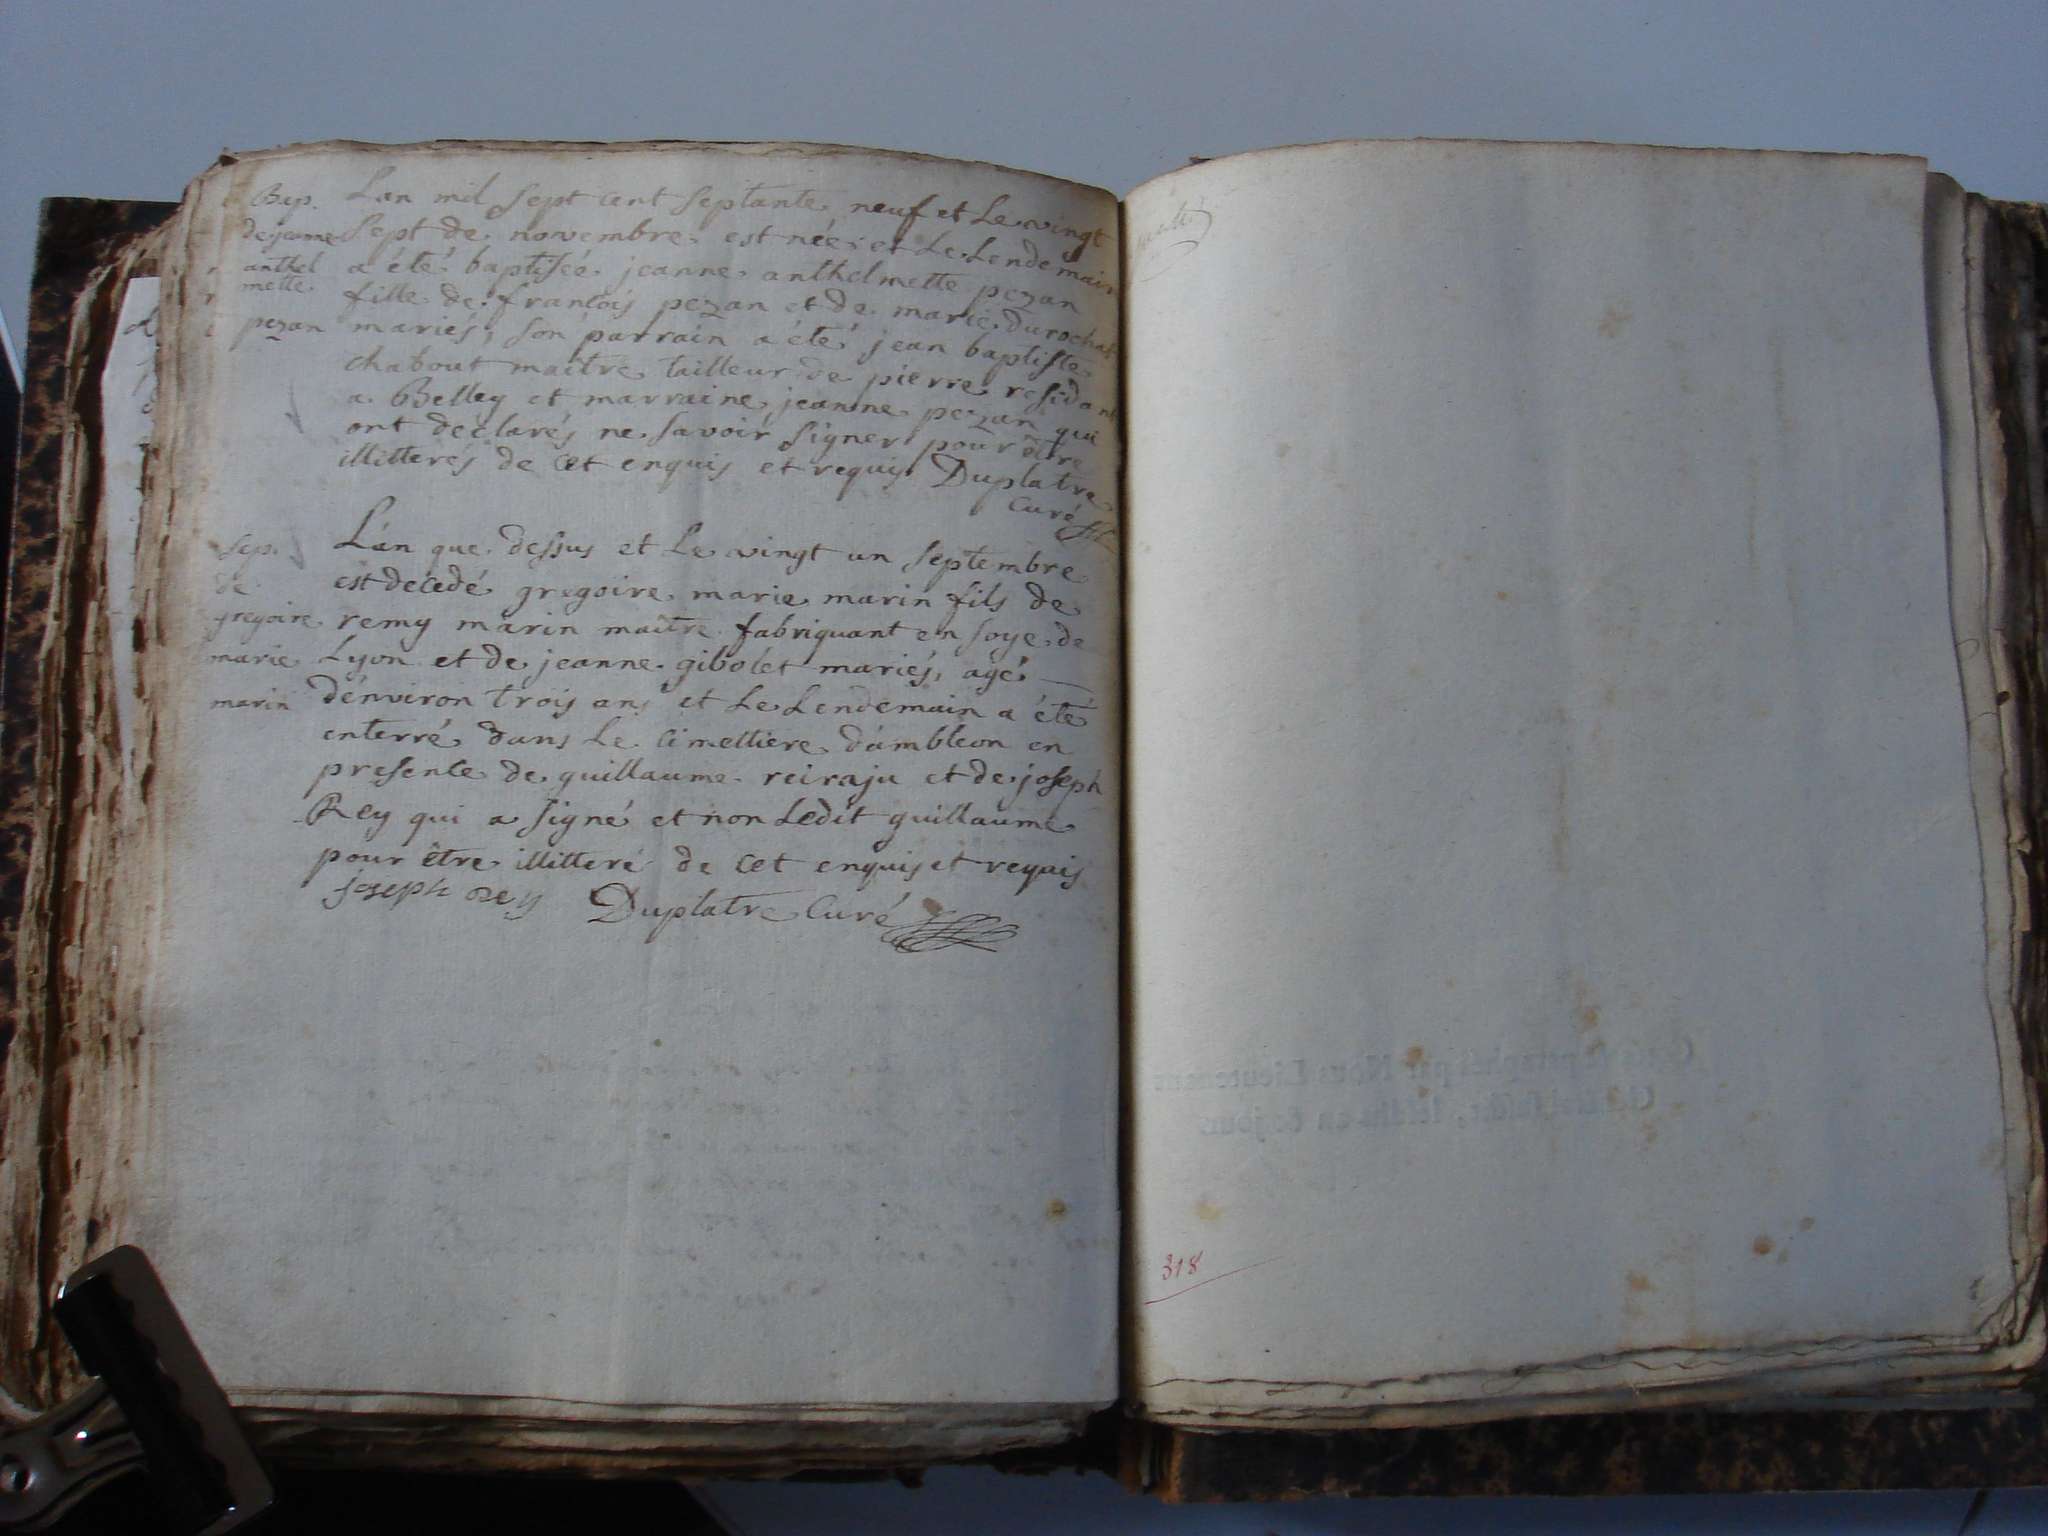 Bap. L'an mil sept cent septante neuf et Le vingt
de jeanne sept de novembre est née et Le Lendemain
anthel a été baptisée jeanne anthelmette pezan
mette fille de françois pezan et de marie durochat
pezan mariés, son parrain a été jean baptiste
chabout maître tailleur de pierre residant
a Belley et marraine jeanne pezan qui
ont declarés ne savoir signer pour être
illitterés de cet enquis et requis Duplatre
Curé
sep. L'an que dessus et Le vingt un septembre
de est decedé gregoire marie marin fils de
gregoire remy marin maitre fabriquant en soye de
marie Lyon et de jeanne gibolet mariés, agé
marin d'énviron trois ans et Le Lendemain a été
enterré dans Le cimettiere d'ambleon en
presence de guillaume reiraju et de joseph
Rey qui a signé et non Ledit guillaume
pour être illitteré de cet enquis et requis
joseph Rey Duplatre Curé
318